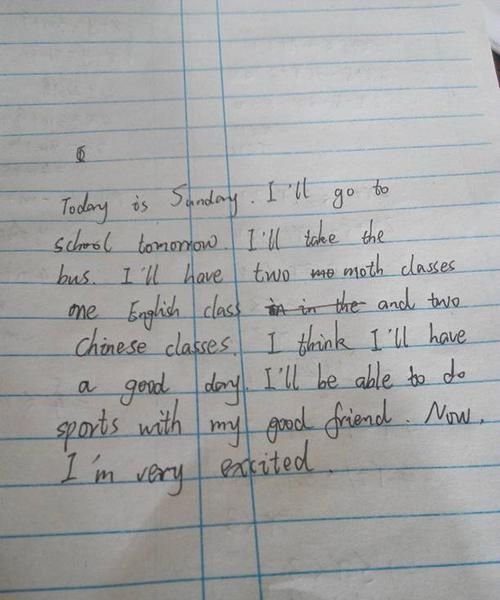 Today is Sunday. I'll go to
school tomorrow. I'll take the
bus. I'll have two moth classes
one English class and two
Chinese classes. I think I'll have
a good day. I'll be able to do
sports with my good friend. Now,
I'm very excited.